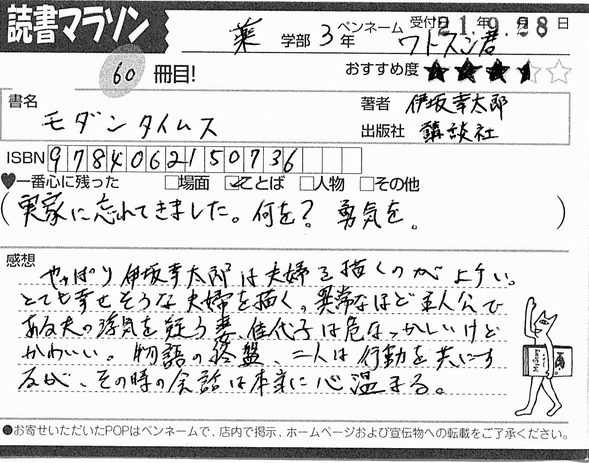 読書マラソン
薬 学部 3年 ペンネーム ワトスン君 受付 21年9月28日
60 冊目! おすすめ度 ★★★★☆☆
書名 モダンタイムス
著者 伊坂幸太郎
出版社 講談社
ISBN 9784062150736
♥一番心に残った □場面 ☑ことば □人物 □その他
(実家に忘れてきました。何を? 勇気を。)
感想
やっぱり伊坂幸太郎は夫婦を描くのが上手い。
とても幸せそうな夫婦を描く。異常なほど主人公で
ある夫の浮気を疑う妻、佳代子は危なっかしいけど
かわいい。物語の終盤、二人は行動を共にす
るが、その時の会話は本当に心温まる。
●お寄せいただいたPOPはペンネームで、店内で掲示、ホームページおよび宣伝物への転載をご了承ください。